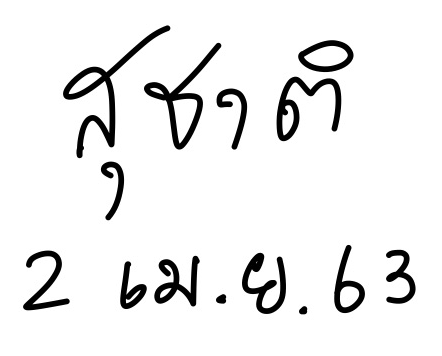 สุชาติ
2 เม.ย. 63